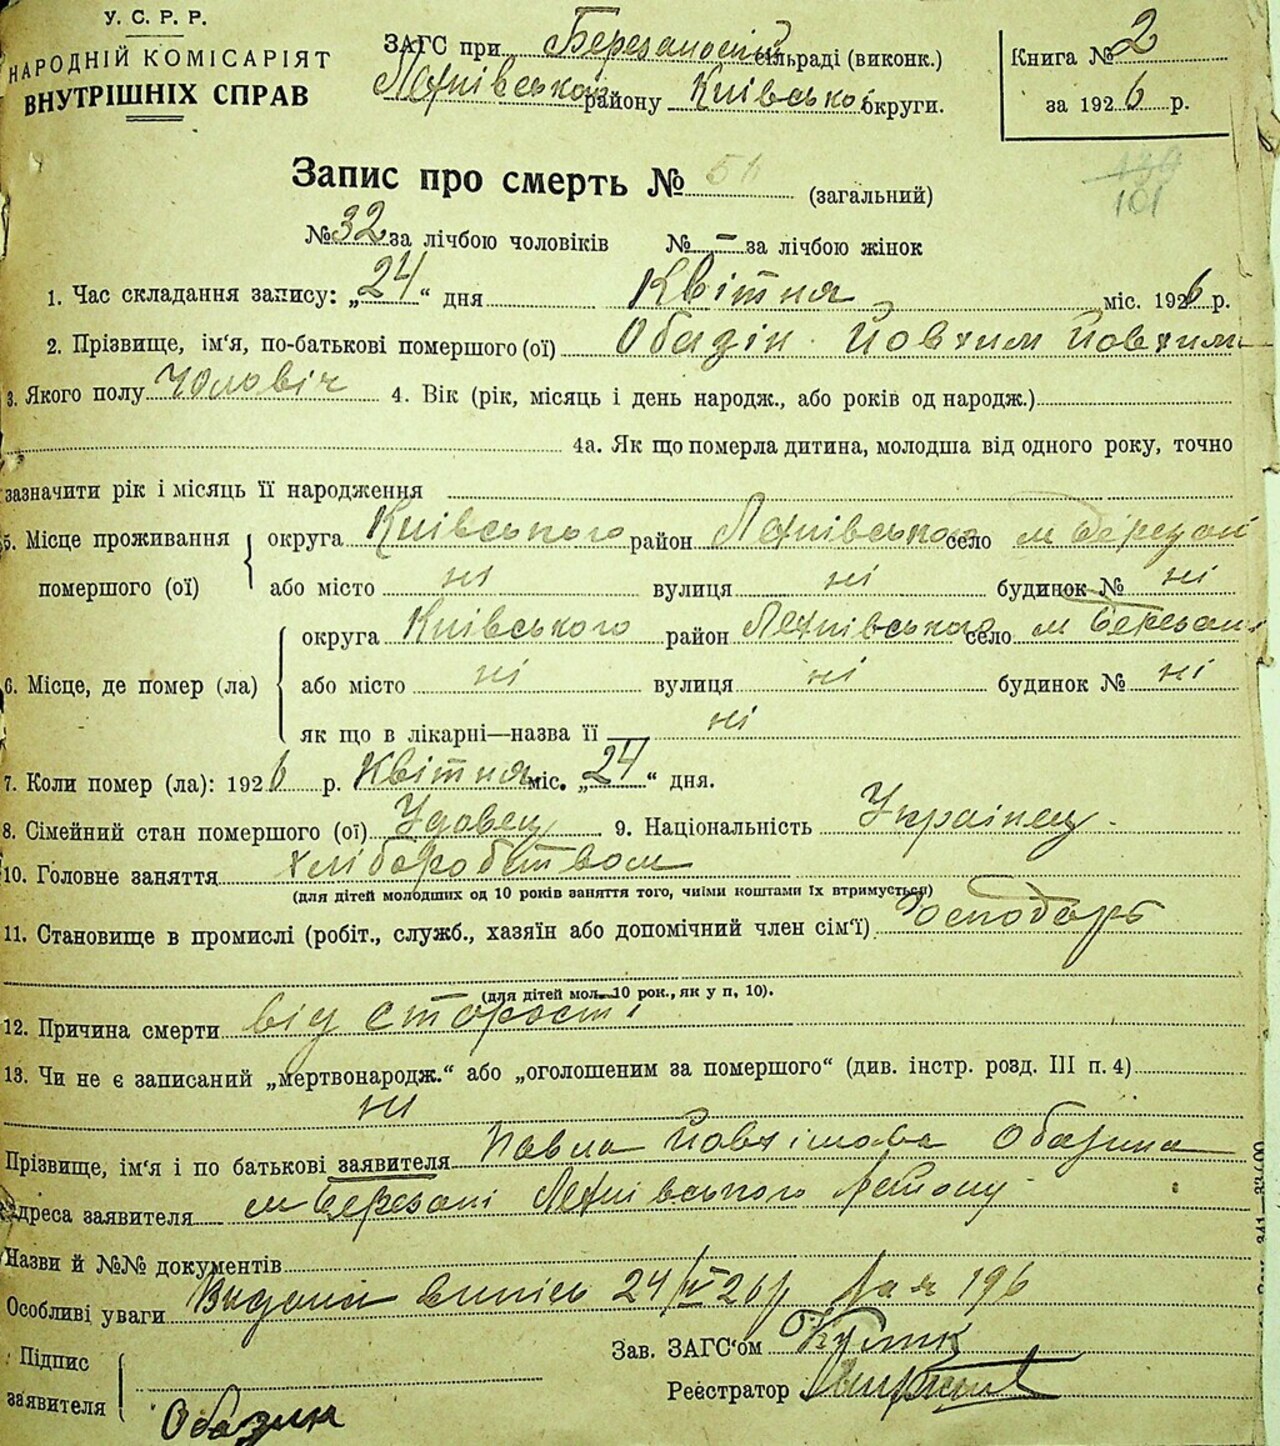 У. С. Р. Р.
НАРОДНІЙ КОМІСАРІЯТ
ВНУТРІШНІХ СПРАВ
ЗАГС при Березанській сільраді (виконк.)
району Київської округи.
Книга № 2
за 1926 р.
Запис про смерть № (загальний)
101
№ 32 за лічбою чоловіків № — за лічбою жінок
1. Час складання запису: „24“ дня Квітня міс. 1926 р.
2. Прізвище, ім'я, по-батькові помершого (ої) Йовхим Йовхим
3. Якого полу Чоловіч 4. Вік (рік, місяць і день народж., або років од народж.)
4а. Як що померла дитина, молодша від одного року, точно
зазначити рік і місяць її народження
5. Місце проживання помершого (ої) округа Київського район село м Березані
або місто ні вулиця ні будинок № ні
6. Місце, де помер (ла) округа Київського район село м Березані
або місто ні вулиця ні будинок № ні
як що в лікарні—назва її ні
7. Коли помер (ла): 1926 р. Квітня міс. „24“ дня.
8. Сімейний стан помершого (ої) Удовец 9. Національність Украінец.
10. Головне заняття хліборобством
(для дітей молодших од 10 років заняття того, чиїми коштами їх втримується)
11. Становище в промислі (робіт., служб., хазяїн або допомічний член сім'ї) Господарь
(для дітей мол. 10 рок., як у п, 10).
12. Причина смерти від старості
13. Чи не є записаний „мертвонародж.“ або „оголошеним за помершого“ (див. інстр. розд. III п. 4)
ні
Прізвище, ім'я і по батькові заявителя Павла
Адреса заявителя м Березані району
Назви й №№ документів
Особливі уваги Видана випісь 24/IV 26 р 196
Підпис заявителя
Зав. ЗАГС'ом
Реєстратор